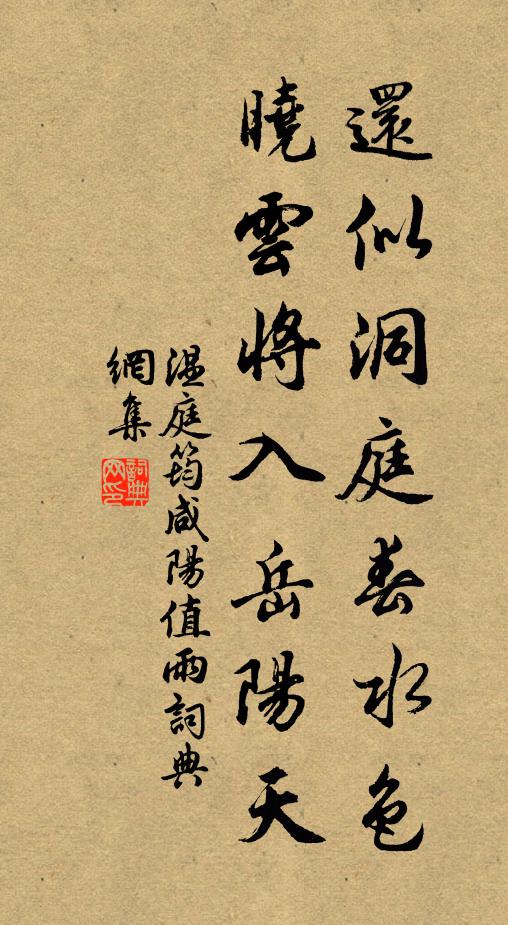 還似洞庭春水色
曉雲將入岳陽天
溫庭筠咸陽值雨詞典
網集
詞典
网印